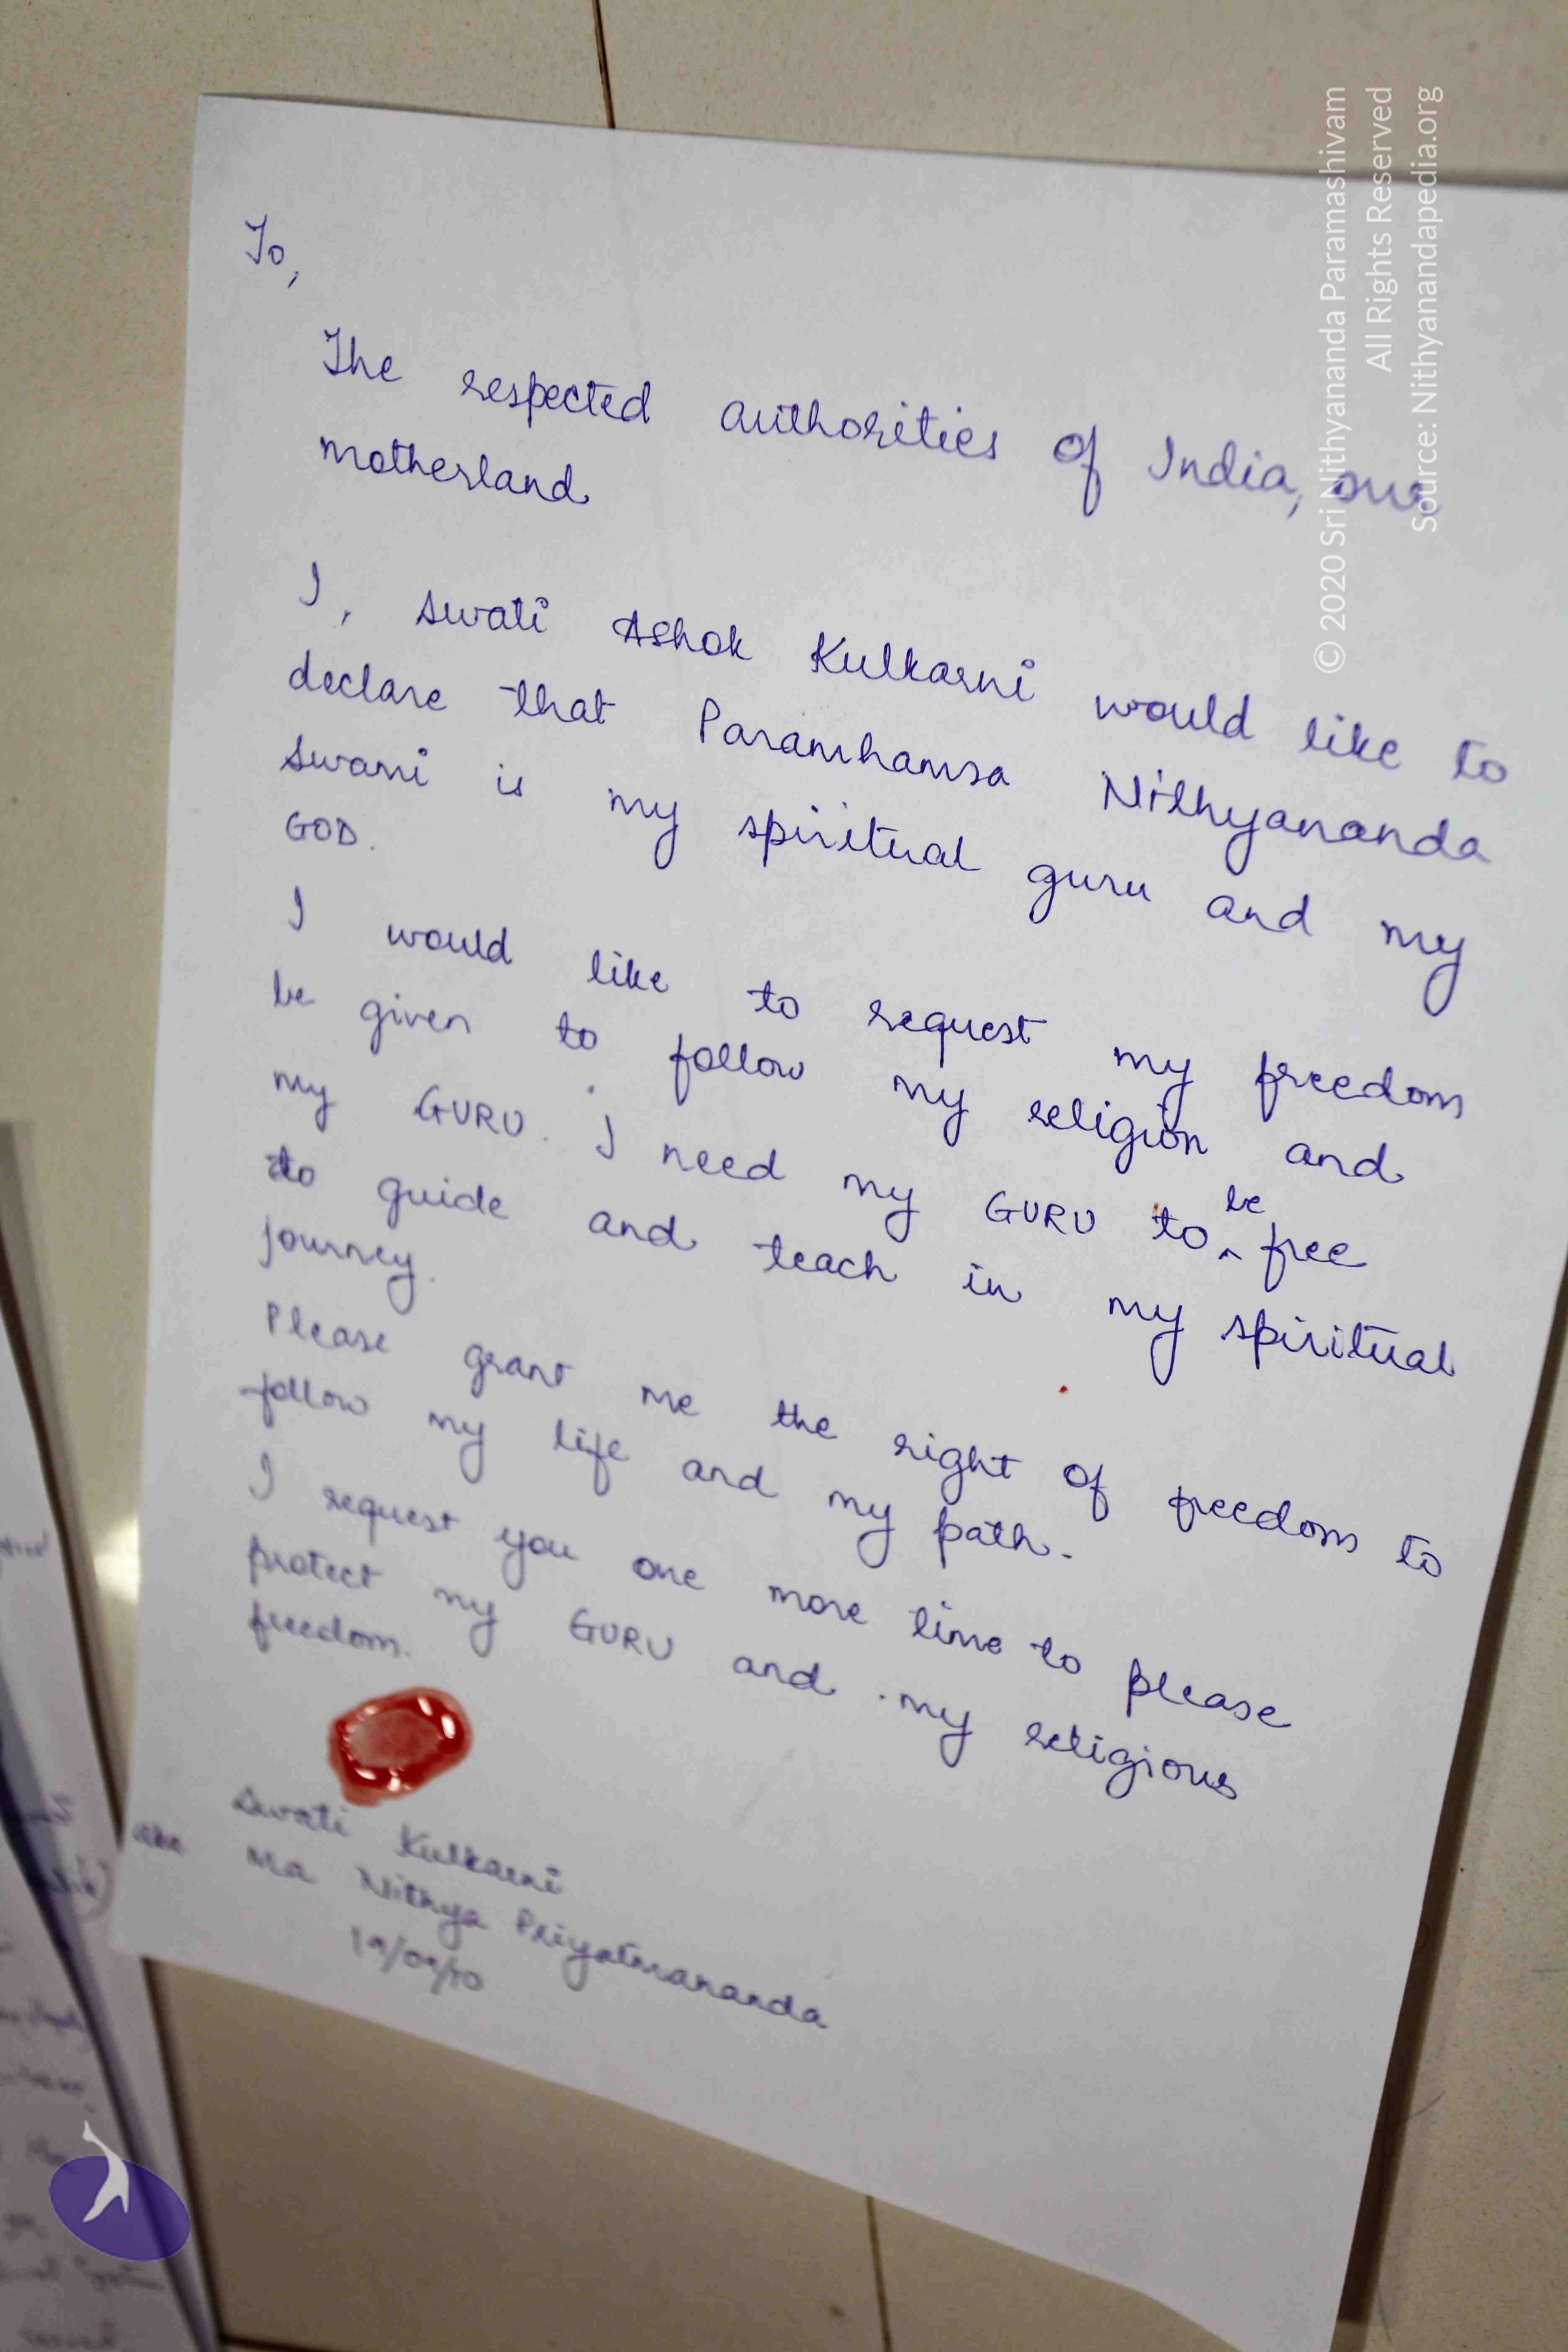 To,
The respected authorities of India, our
motherland
I, Swati Ashok Kulkarni would like to
declare that Paramhamsa Nithyananda
Swami is my spiritual guru and my
GOD.
I would like to request my freedom
be given to follow my religion and
my GURU. I need my GURU to be free
to guide and teach in my spiritual
journey.
Please grant me the right of freedom to
follow my life and my path.
I request you one more time to please
protect my GURU and my religious
freedom.
Swati Kulkarni
aka Ma Nithya Priyatmananda
© 2020 Sri Nithyananda Paramashivam
All Rights Reserved
Source: Nithyanandapedia.org